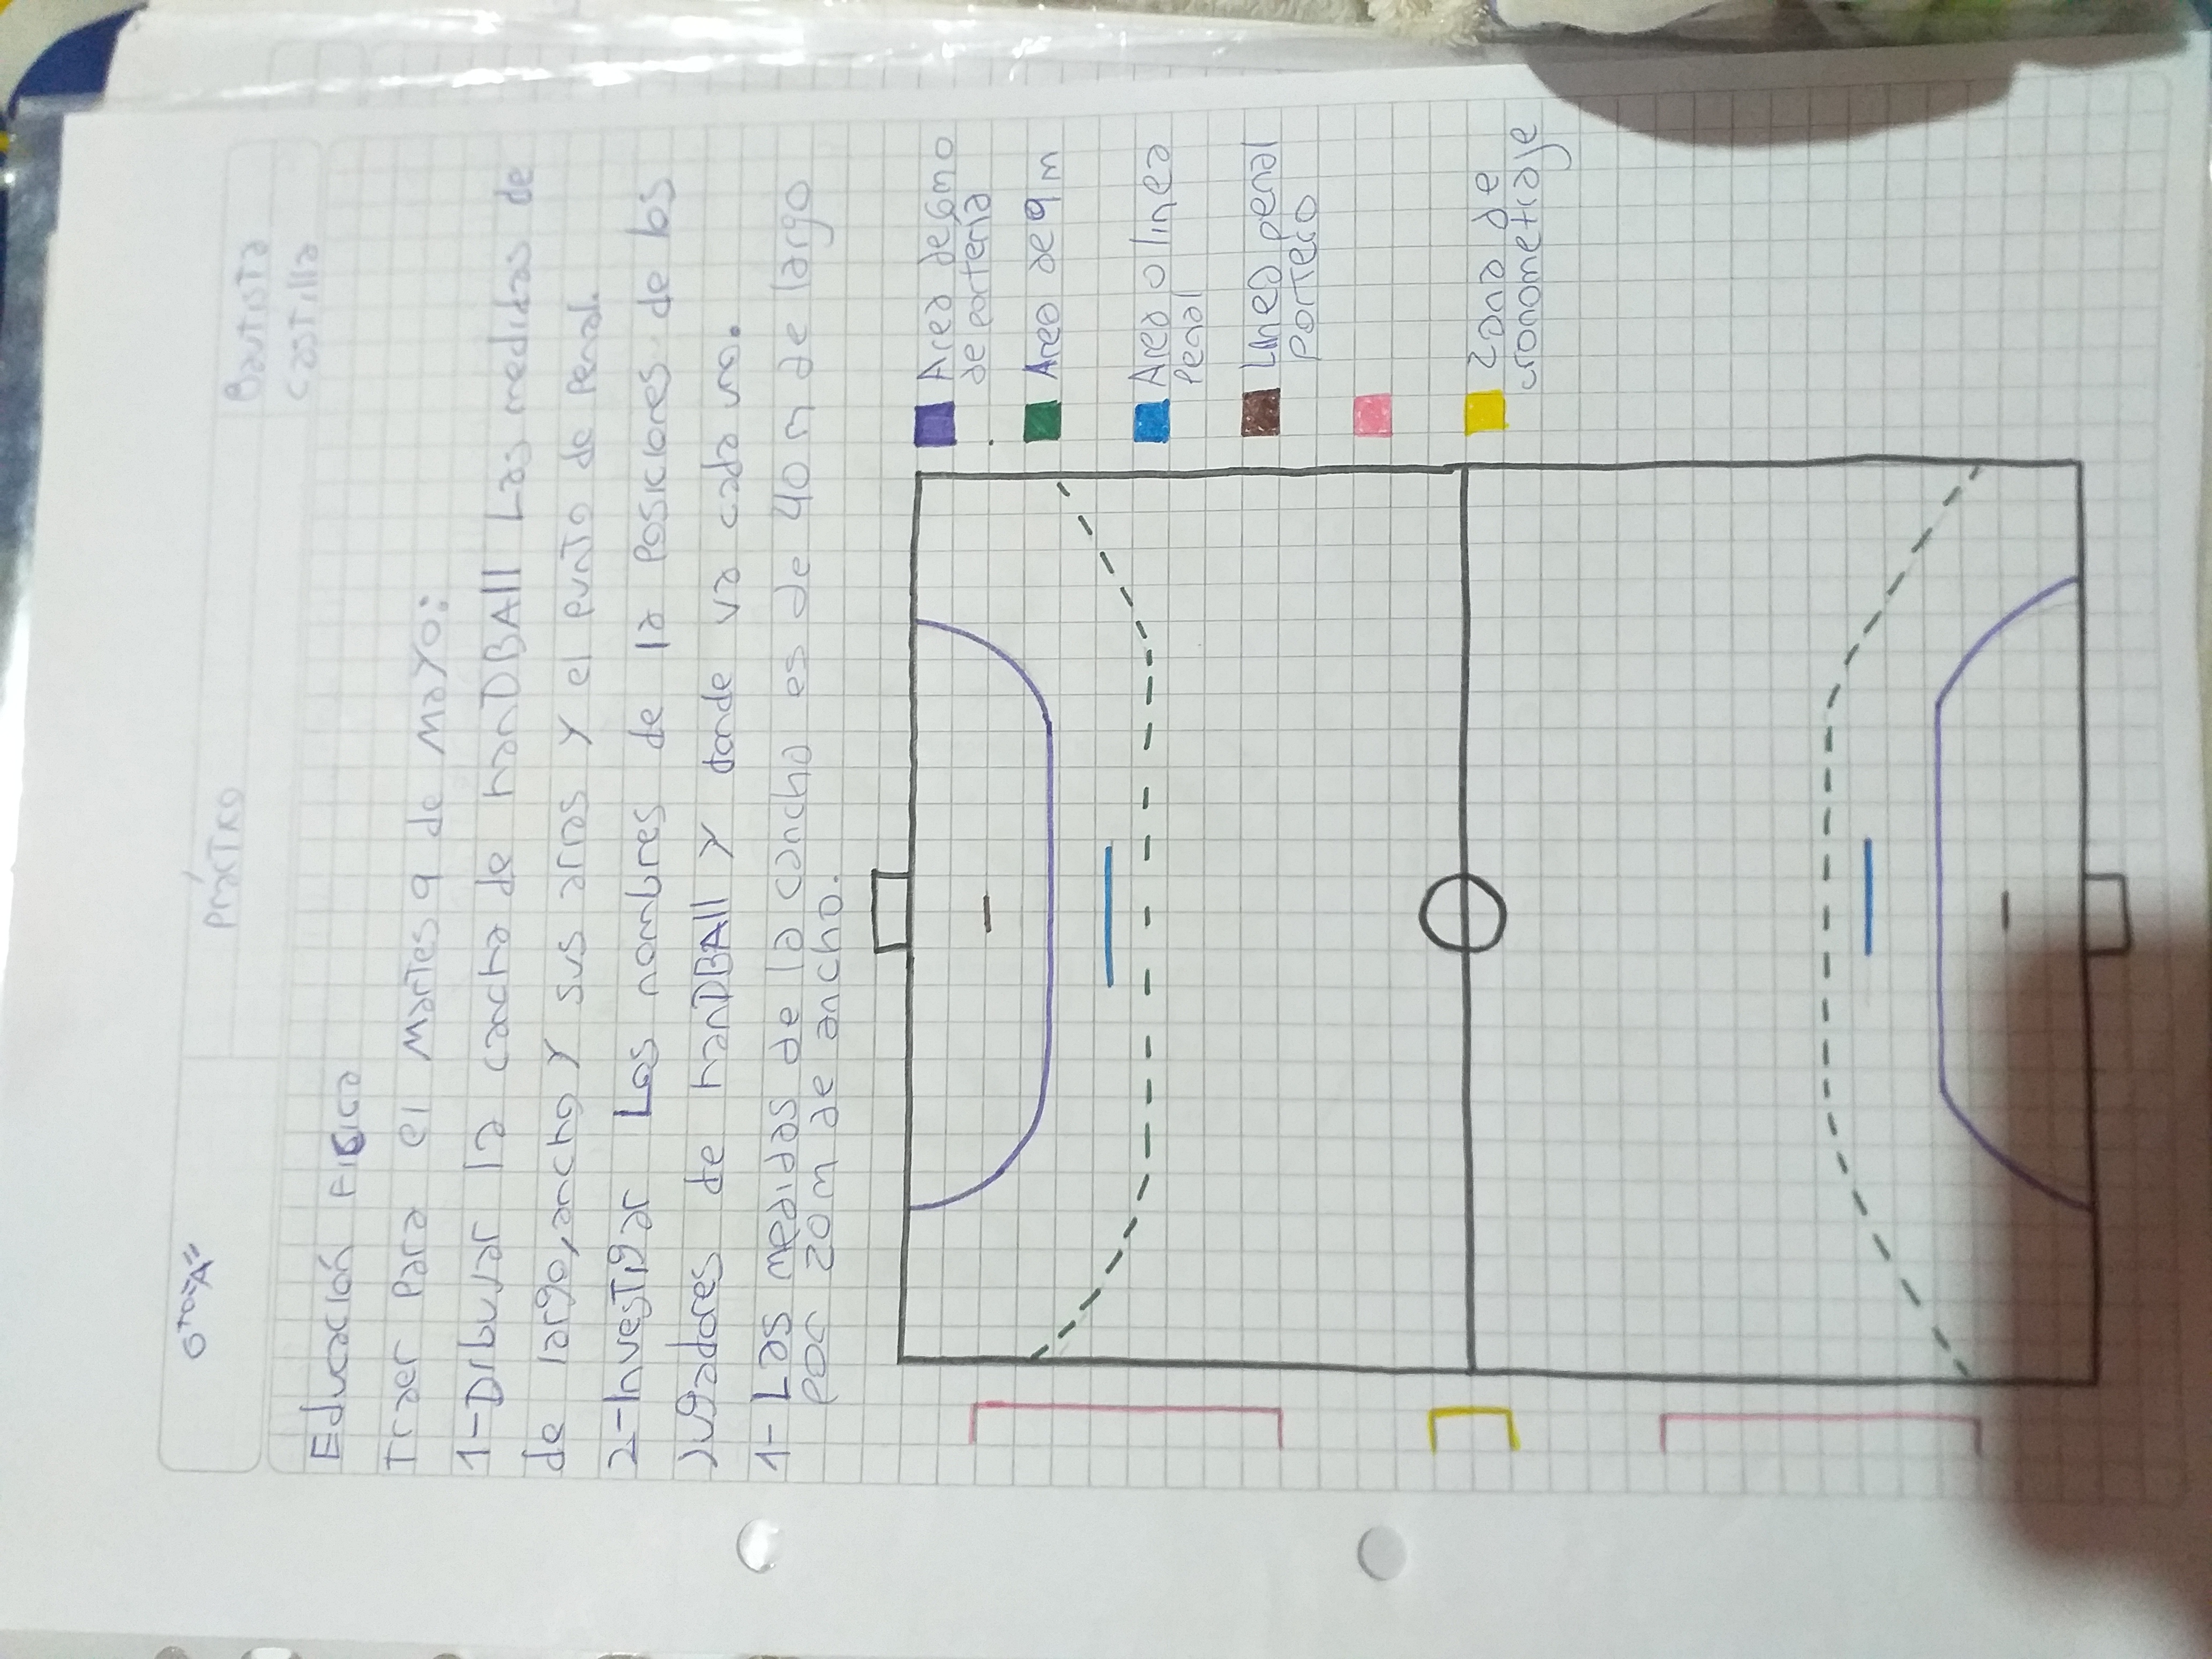 6to "A"
Práctico
Bautista
Castilla
Educación Fisica
Traer para el Martes 9 de Mayo:
1-Dibujar la cancha de hanDBAll Las medidas de
de largo, ancho y sus arcos y el punto de Penal.
2-Investigar Los nombres de la posiciones de los
jugadores de hanDBAll y donde va cada uno.
1- Las medidas de la cancha es de 40 m de largo
por 20 m de ancho.
Area de 6m o
de portería
Area de 9 m
Area o linea
Penal
Linea penal
portero
Zona de
cronometraje